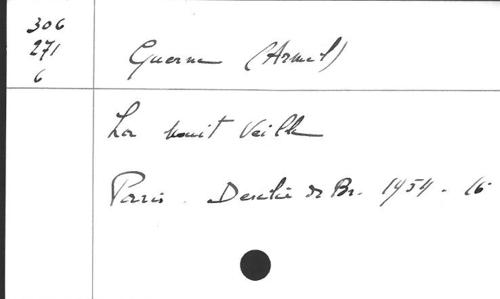 306
271
6
Guerne (Armel)
La nuit Veille
Paris. Desclée de Br. 1954 - 16